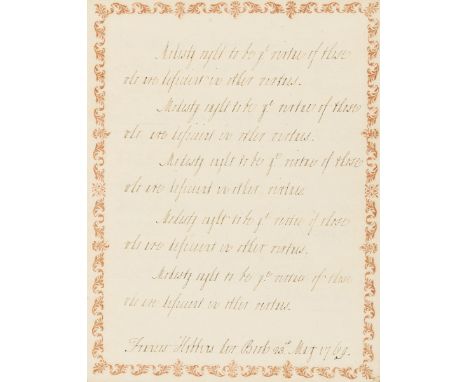 Modesty ought to be yᵉ virtue of those
who are deficient in other virtues.
Modesty ought to be yᵉ virtue of those
who are deficient in other virtues.
Modesty ought to be yᵉ virtue of those
who are deficient in other virtues
Modesty ought to be yᵉ virtue of those
who are deficient in other virtues.
Modesty ought to be yᵉ virtue of those
who are deficient in other virtues.
Frances her Book 23ᵈ May 1764.